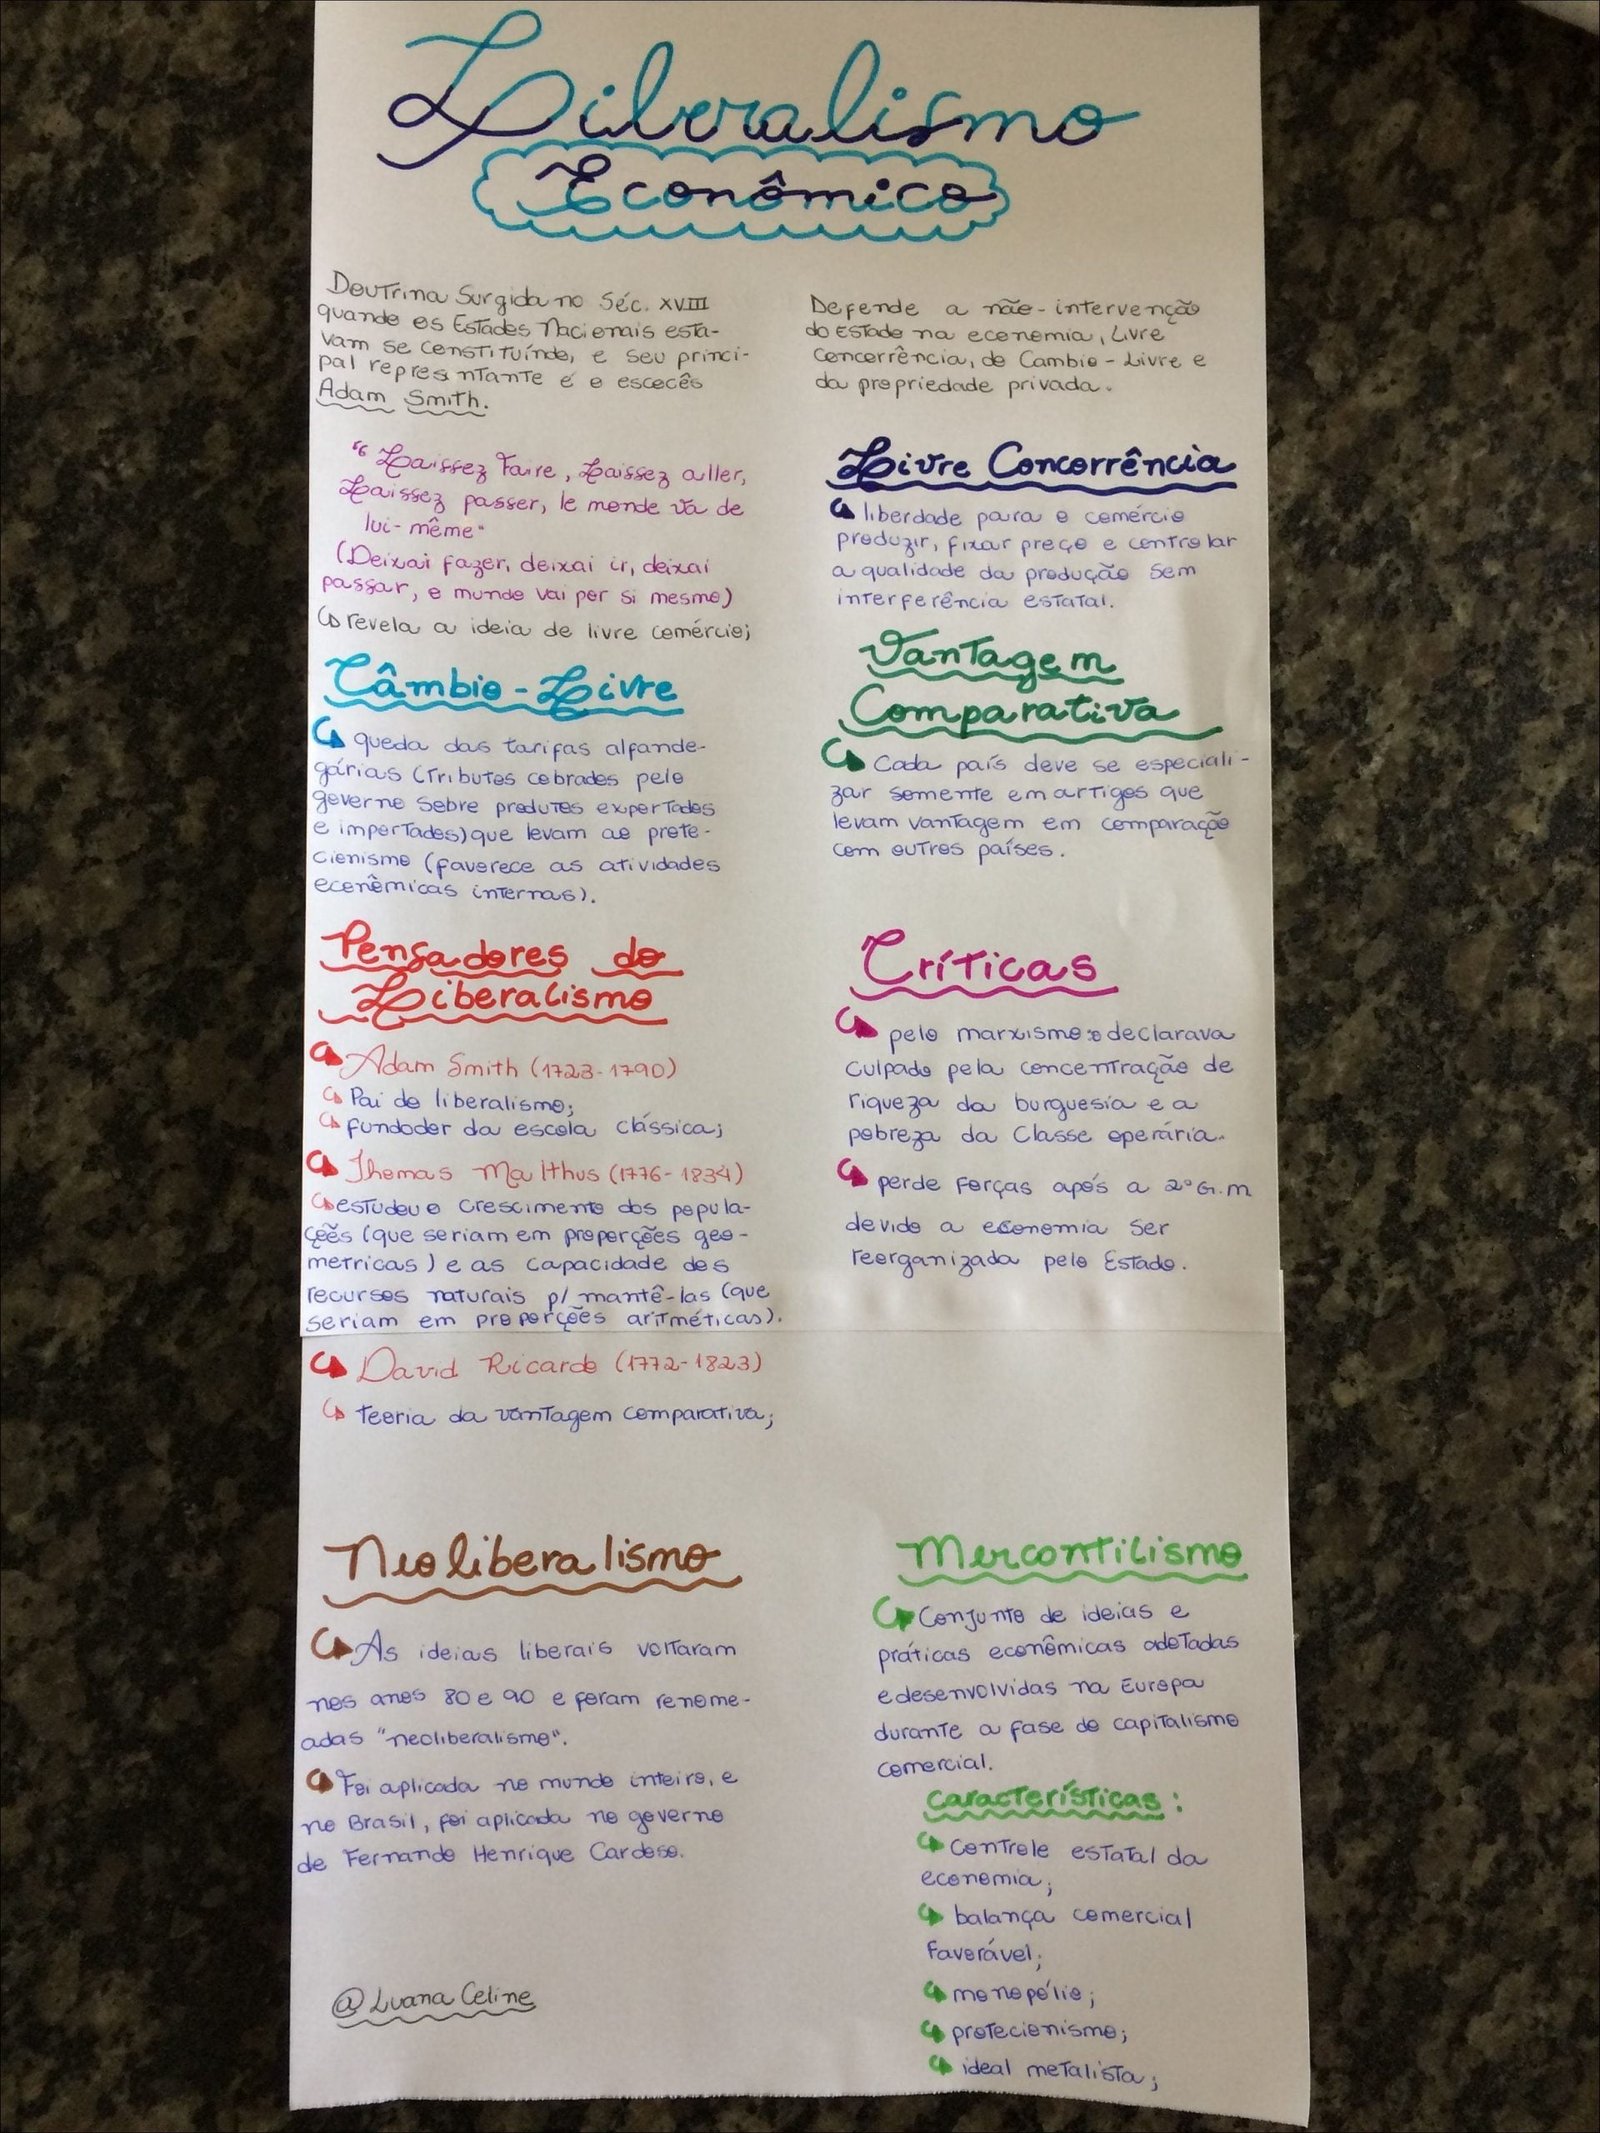 Liberalismo
Econômico
Doutrina Surgida no Séc. XVIII
quando os Estados Nacionais esta-
vam se constituíndo, e seu princi-
pal representante é o escocês
Adam Smith.
"Laissez Faire, Laissez aller,
Laissez passer, le monde va de
lui-même"
(Deixai fazer, deixai ir, deixai
passar, o mundo vai por si mesmo)
revela a ideia de livre comércio;
Câmbio-Livre
queda das tarifas alfande-
gárias (Tributos cobrados pelo
governo sobre produtos exportados
e importados) que levam ao prote-
cionismo (favorece as atividades
econômicas internas).
Pensadores do
Liberalismo
Adam Smith (1723-1790)
Pai do liberalismo;
fundador da escola clássica;
Thomas Malthus (1776-1834)
estudou o crescimento das popula-
ções (que seriam em proporções geo-
metricas) e as capacidade dos
recursos naturais p/ mantê-las (que
seriam em proporções aritméticas).
David Ricardo (1772-1823)
teoria da vantagem comparativa;
Neoliberalismo
As ideias liberais voltaram
nos anos 80 e 90 e foram renome-
adas "neoliberalismo".
Foi aplicada no mundo inteiro, e
no Brasil, foi aplicada no governo
de Fernando Henrique Cardoso.
@Luana Celine
Defende a não-intervenção
do Estado na economia, Livre
Concorrência, do Cambio-Livre e
da propriedade privada.
Livre Concorrência
liberdade para o comércio
produzir, fixar preço e controlar
a qualidade da produção sem
interferência estatal.
Vantagem
Comparativa
Cada país deve se especiali-
zar somente em artigos que
levam vantagem em comparação
com outros países.
Críticas
pelo marxismo: declarava
culpado pela concentração de
riqueza da burguesia e a
pobreza da classe operária.
perde forças após a 2ª G.M
devido a economia ser
reorganizada pelo Estado.
Mercantilismo
Conjunto de ideias e
práticas econômicas adotadas
e desenvolvidas na Europa
durante a fase do capitalismo
comercial.
Características:
Controle estatal da
economia;
balança comercial
favorável;
monopólio;
protecionismo;
ideal metalista;